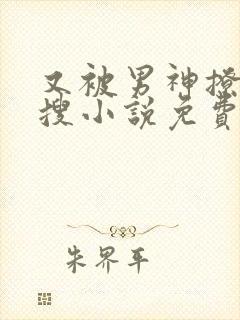 又被男神撩
搜小説免費
朱界平